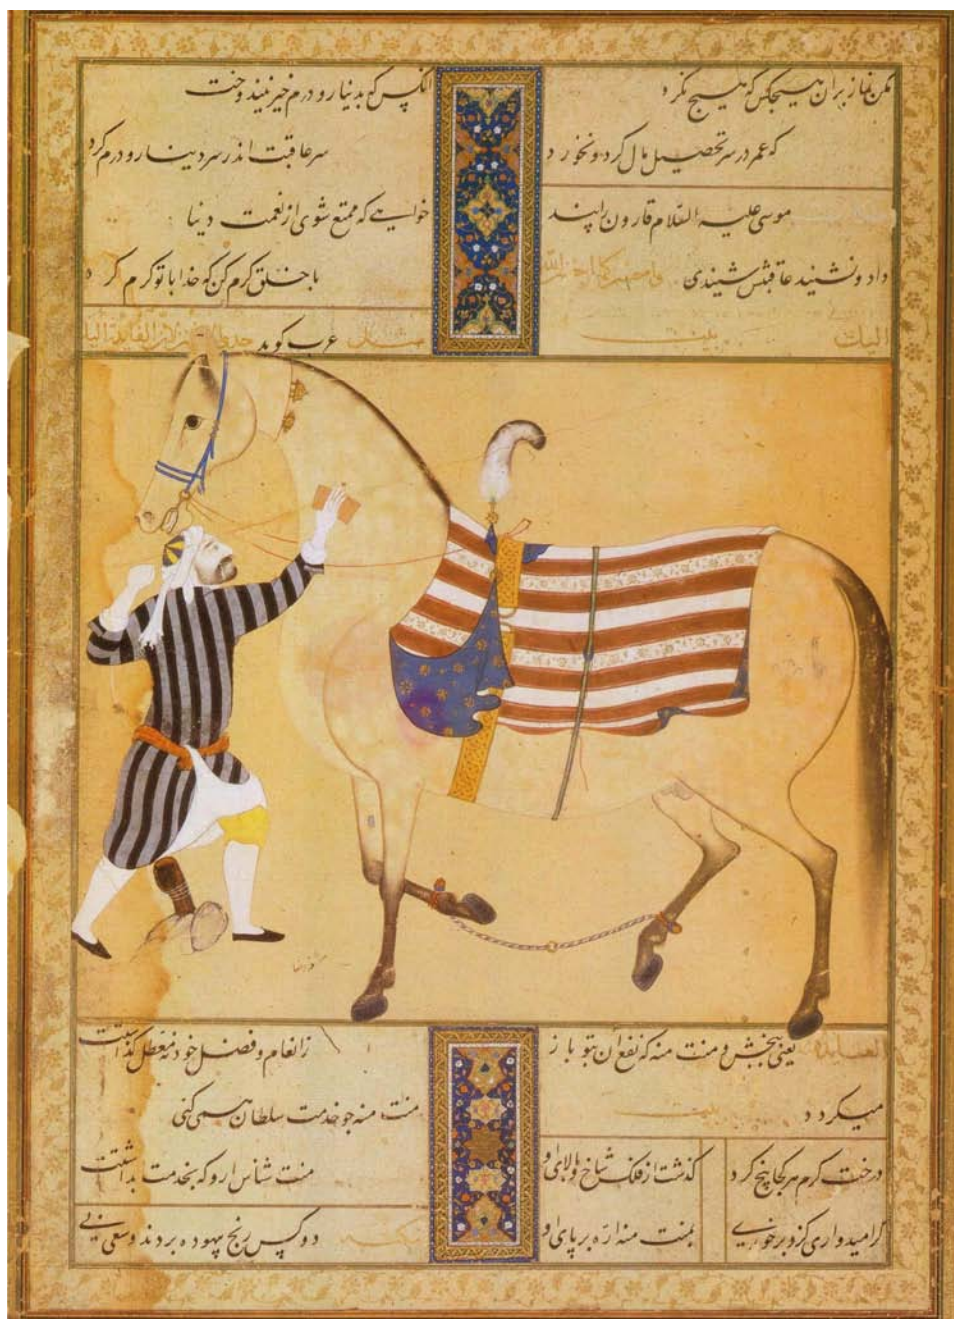 مکن نماز بران هیچکس که هیچ نکرد
که عمر در سر تحصیل مال کرد و نخورد
موسی علیه السلام قارون را پند
داد و نشنید عاقبتش شنیدی
الیک بیت
انکس که بدینار و درم خیر نیندوخت
سر عاقبت اندر سر دینار و درم کرد
خواهی که ممتع شوی از نعمت دنیا
با خلق کرم کن که خدا با تو کرم کرد
عرب کوید
یعنی ببخش و منت منه که نفع آن بتو باز
میکردد بیت
درخت کرم هر کجا بیخ کرد
کذشت از فلک شاخ و بالای او
کر امیدواری کزو بر خوری
بمنت منه اره بر پای او
ز انعام و فضل خود نه معطل کذاشتت
منت منه جو خدمت سلطان همی کنی
منت شناس ازو که بخدمت بداشتت
دو کس رنج بیهوده بردند و سعی بی